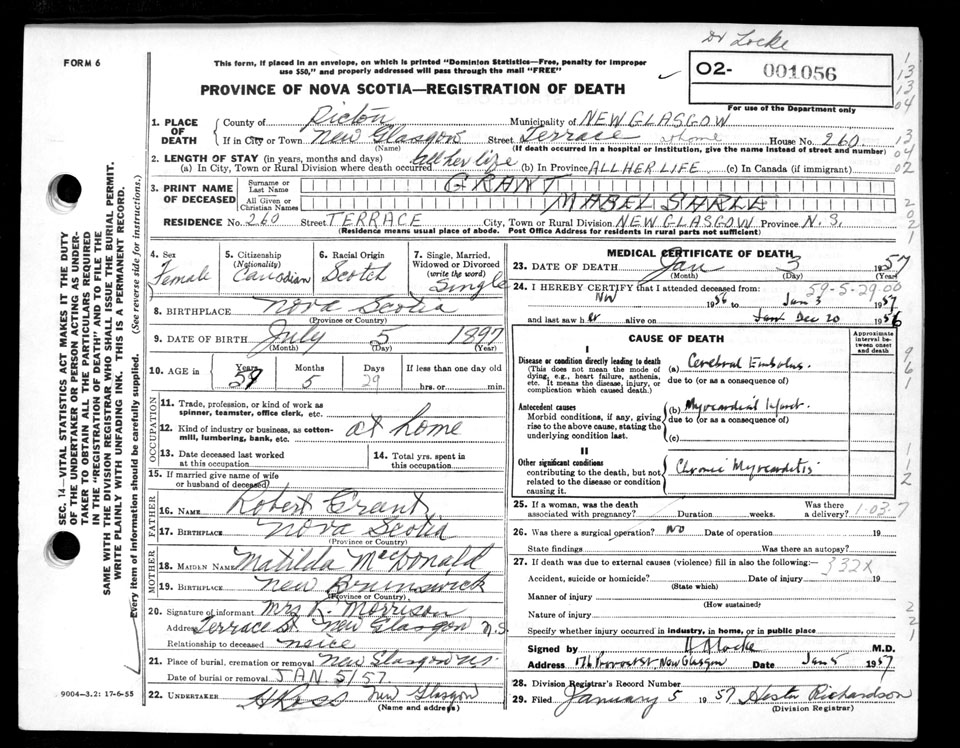 Dr Locke
FORM 6
This form, if placed in an envelope, on which is printed "Dominion Statistics—Free, penalty for improper
use $50," and properly addressed will pass through the mail "FREE"
O2- 001056
For use of the Department only
PROVINCE OF NOVA SCOTIA—REGISTRATION OF DEATH
1. PLACE OF DEATH { County of Pictou Municipality of NEW GLASGOW
If in City or Town New Glasgow Street Terrace at home House No. 260
(Name) (If death occurred in a hospital or institution, give the name instead of street and number)
2. LENGTH OF STAY (in years, months and days)
(a) In City, Town or Rural Division where death occurred all her life (b) In Province ALL HER LIFE (c) In Canada (if immigrant)
3. PRINT NAME OF DECEASED { Surname or Last Name GRANT
All Given or Christian Names MABEL
RESIDENCE No. 260 Street TERRACE City, Town or Rural Division NEW GLASGOW Province N.S.
(Residence means usual place of abode. Post Office Address for residents in rural parts not sufficient)
4. Sex Female
5. Citizenship (Nationality) Canadian
6. Racial Origin Scotch
7. Single, Married, Widowed or Divorced (write the word) Single
8. BIRTHPLACE Nova Scotia
(Province or Country)
9. DATE OF BIRTH July 5 1897
(Month) (Day) (Year)
10. AGE Years 59 Months 5 Days 29 If less than one day old
hrs. or min.
OCCUPATION
11. Trade, profession, or kind of work as
spinner, teamster, office clerk, etc.
12. Kind of industry or business, as cotton-
mill, lumbering, bank, etc. at home
13. Date deceased last worked at this occupation
14. Total yrs. spent in this occupation
15. If married give name of wife
or husband of deceased
FATHER
16. NAME Robert Grant
17. BIRTHPLACE Nova Scotia
(Province or Country)
MOTHER
18. MAIDEN NAME Matilda MacDonald
19. BIRTHPLACE New Brunswick
(Province or Country)
20. Signature of informant Mrs R. Morrison
Address Terrace St. New Glasgow N.S.
Relationship to deceased neice
21. Place of burial, cremation or removal New Glasgow N.S.
Date of burial or removal JAN. 5/57
22. UNDERTAKER H Ross New Glasgow
(Name and address)
MEDICAL CERTIFICATE OF DEATH
23. DATE OF DEATH Jan 3 1957
(Month) (Day)
24. I HEREBY CERTIFY that I attended deceased from: 59-5-29.00
1956 to Jan 3 1957
and last saw her alive on Jan Dec 20 1956
CAUSE OF DEATH
Approximate interval between onset and death
I
Disease or condition directly leading to death (a) Cerebral Embolus.
(This does not mean the mode of dying, e.g., heart failure, asthenia, etc. It means the disease, injury, or complication which caused death.)
due to (or as a consequence of)
Antecedent causes (b) Myocardial Infarct.
Morbid conditions, if any, giving rise to the above cause, stating the underlying condition last.
due to (or as a consequence of)
(c)
II
Other significant conditions Chronic Myocarditis
contributing to the death, but not related to the disease or condition causing it.
25. If a woman, was the death associated with pregnancy? Duration weeks. Was there a delivery? 1.03.7
26. Was there a surgical operation? NO Date of operation 19
State findings Was there an autopsy?
27. If death was due to external causes (violence) fill in also the following:— 332X
Accident, suicide or homicide? Date of injury 19
(State which)
Manner of injury
(How sustained)
Nature of injury
Specify whether injury occurred in industry, in home, or in public place
Signed by H Locke M.D.
Address 176 Provost St, New Glasgow Date Jan 5 1957
28. Division Registrar's Record Number
29. Filed January 5 1957 Hester Richardson
(Division Registrar)
SEC. 14—VITAL STATISTICS ACT MAKES IT THE DUTY
OF THE UNDERTAKER OR PERSON ACTING AS UNDER-
TAKER TO OBTAIN ALL THE PARTICULARS REQUIRED
IN THE "REGISTRATION OF DEATH" AND TO FILE THE
SAME WITH THE DIVISION REGISTRAR WHO SHALL ISSUE THE BURIAL PERMIT.
WRITE PLAINLY WITH UNFADING INK. THIS IS A PERMANENT RECORD.
Every item of information should be carefully supplied. (See reverse side for instructions.)
9004-3.2: 17-6-55
1
13
13
04
13
04
02
202
1
961
112
221